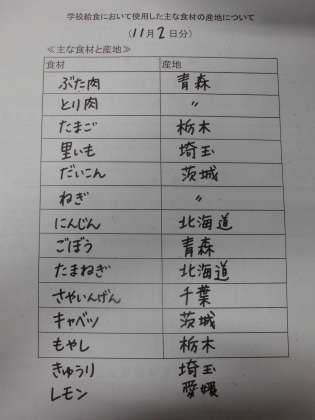 学校給食において使用した主な食材の産地について
(11月2日分)
≪主な食材と産地≫
食材 産地
ぶた肉 青森
とり肉 〃
たまご 栃木
里いも 埼玉
だいこん 茨城
ねぎ 〃
にんじん 北海道
ごぼう 青森
たまねぎ 北海道
さやいんげん 千葉
キャベツ 茨城
もやし 栃木
きゅうり 埼玉
レモン 愛媛